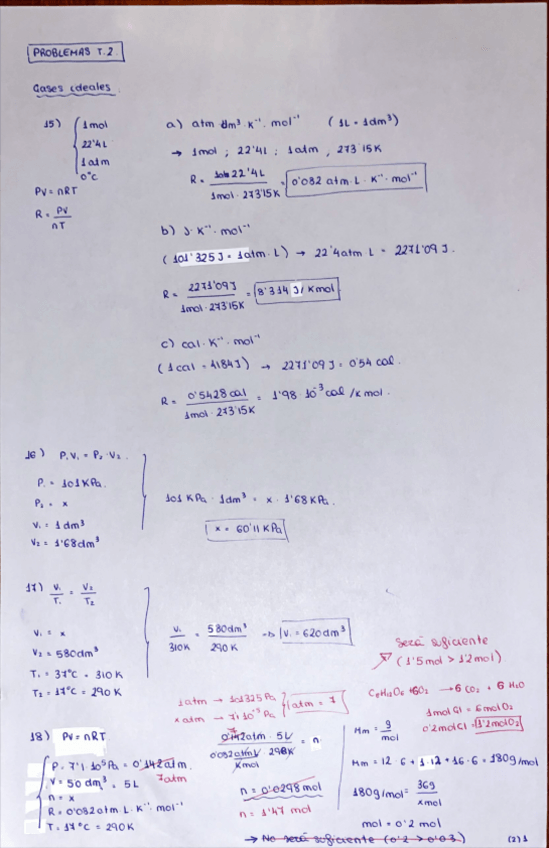 PROBLEMAS T.2
Gases ideales
15) 1mol
22'4L
1atm
0°C
PV = nRT
R = PV / nT
a) atm dm³ · K⁻¹ · mol⁻¹ (1L = 1dm³)
→ 1mol ; 22'4L ; 1atm , 273'15K
R = 22'4L / 1mol · 273'15K = 0'082 atm · L · K⁻¹ · mol⁻¹
b) J · K⁻¹ · mol⁻¹
(101'325J = 1atm · L) → 22'4atm L = 2271'09 J.
R = 2271'09J / 1mol · 273'15K = 8'314 J/Kmol
c) cal · K⁻¹ · mol⁻¹
(1cal = 4184J) → 2271'09 J = 0'54 cal.
R = 0'5428 cal / 1mol · 273'15K = 1'98 10⁻³ cal /K mol.
16) P₁V₁ = P₂ · V₂
P₁ = 101KPa.
P₂ = x
V₁ = 1dm³
V₂ = 1'68dm³
101 KPa · 1dm³ = x · 1'68KPa.
x = 60'11 KPa
17) V₁ / T₁ = V₂ / T₂
V₁ = x
V₂ = 580dm³
T₁ = 37°C = 310K
T₂ = 17°C = 290K
V₁ / 310K = 580dm³ / 290K → V₁ = 620dm³
Será suficiente
(1'5mol > 1'2mol)
1atm → 101325 Pa
x atm → 7'1 10⁻⁵ Pa
atm = 7
C₆H₁₂O₆ + 6O₂ → 6CO₂ + 6H₂O
1mol Gl = 6mol O₂
0'2mol Gl = 1'2mol O₂
18) PV = nRT
P = 7'1 10⁵Pa = 0'142atm.
7atm
V = 50 dm³ = 5L
n = x
R = 0'082atm L · K⁻¹ · mol⁻¹
T = 17°C = 290K
7
0'142atm · 5L / 0'082atm L / Kmol · 290K = n
n = 0'0298mol
n = 1'47 mol
Mm = g / mol
Mm = 12 · 6 + 1 · 12 + 16 · 6 = 180g/mol
180g/mol = 36g / x mol
mol = 0'2 mol
→ No será suficiente (0'2 > 0'03)
(2)1